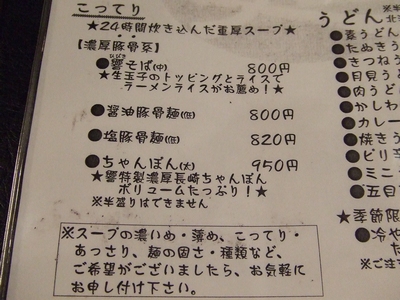 こってり
★24時間炊き込んだ重厚スープ★
【濃厚豚骨系】
ひびき
●響そば(中) 800円
★生玉子のトッピングとライスで
ラーメンライスがお薦め!★
●醤油豚骨麺(低) 800円
●塩豚骨麺(低) 820円
●ちゃんぽん(太) 950円
★響特製濃厚長崎ちゃんぽん
ボリュームたっぷり!★
※半盛りはできません
※スープの濃いめ・薄め、こってり・
あっさり、麺の固さ・種類など、
ご希望がございましたら、お気軽に
お申し付け下さい。
※半
うどん
北海
●素うどん
●たぬきう
●きつねう
●月見うど
●肉うどん
●かしわ
●カレー
●焼きう
●ピリ辛
●ミニ
●五目
★季節限
●冷や
※ご注文